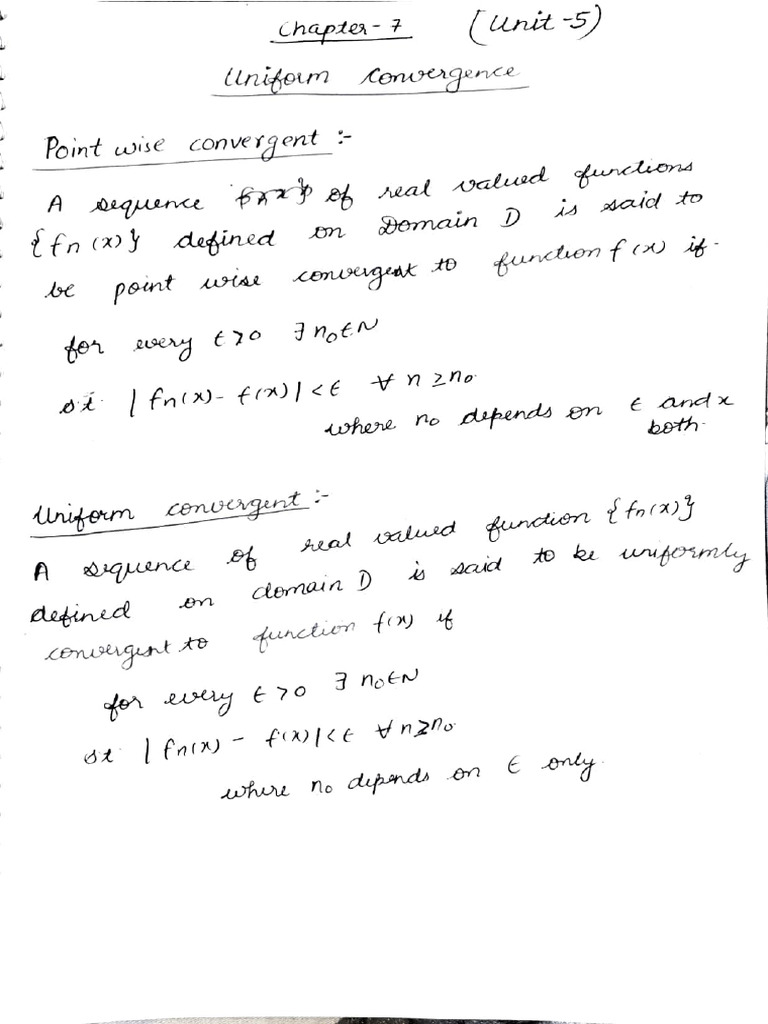 Chapter-7 (Unit-5)
Uniform convergence
Point wise convergent :-
A sequence of real valued functions
{fn(x)} defined on Domain D is said to
be point wise convergent to function f(x) if.
for every ϵ>0 ∃ n₀∈N
s.t. |fn(x)-f(x)|<ϵ ∀ n≥n₀
where n₀ depends on ϵ and x
both.
Uniform convergent :-
A sequence of real valued function {fn(x)}
defined on domain D is said to be uniformly
convergent to function f(x) if
for every ϵ>0 ∃ n₀∈N
st |fn(x) - f(x)|<ϵ ∀ n≥n₀
where n₀ depends on ϵ only.